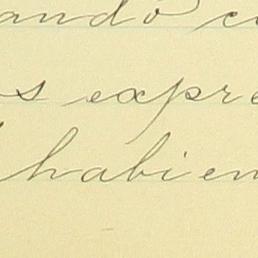 andó c
s expre
habien